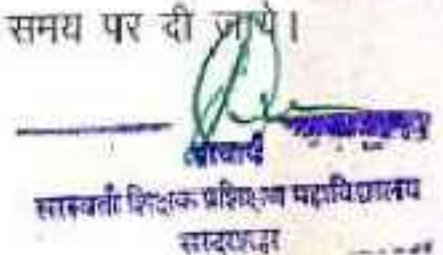 समय पर दी जाये।
प्राचार्य
सरस्वती शिक्षक प्रशिक्षण महाविद्यालय
सादुलशहर